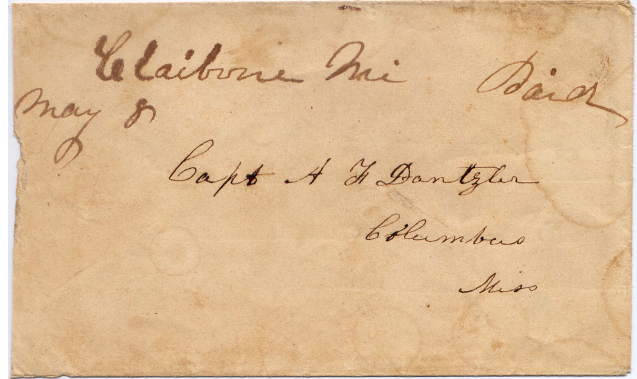 Claiborne Mi Paid
May 8
Capt A F Dantzler
Columbus
Miss